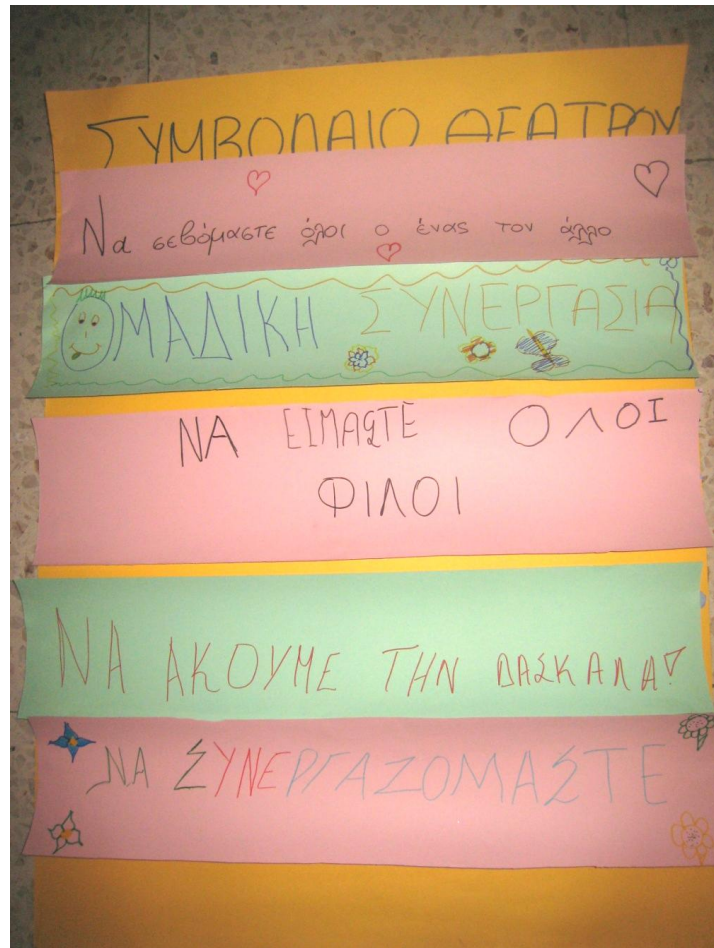 ΣΥΜΒΟΛΑΙΟ ΘΕΑΤΡΟΥ
Να σεβόμαστε όλοι ο ένας τον άλλο
ΟΜΑΔΙΚΗ ΣΥΝΕΡΓΑΣΙΑ
ΝΑ ΕΙΜΑΣΤΕ ΟΛΟΙ
ΦΙΛΟΙ
ΝΑ ΑΚΟΥΜΕ ΤΗΝ ΔΑΣΚΑΛΑ!
ΝΑ ΣΥΝΕΡΓΑΖΟΜΑΣΤΕ